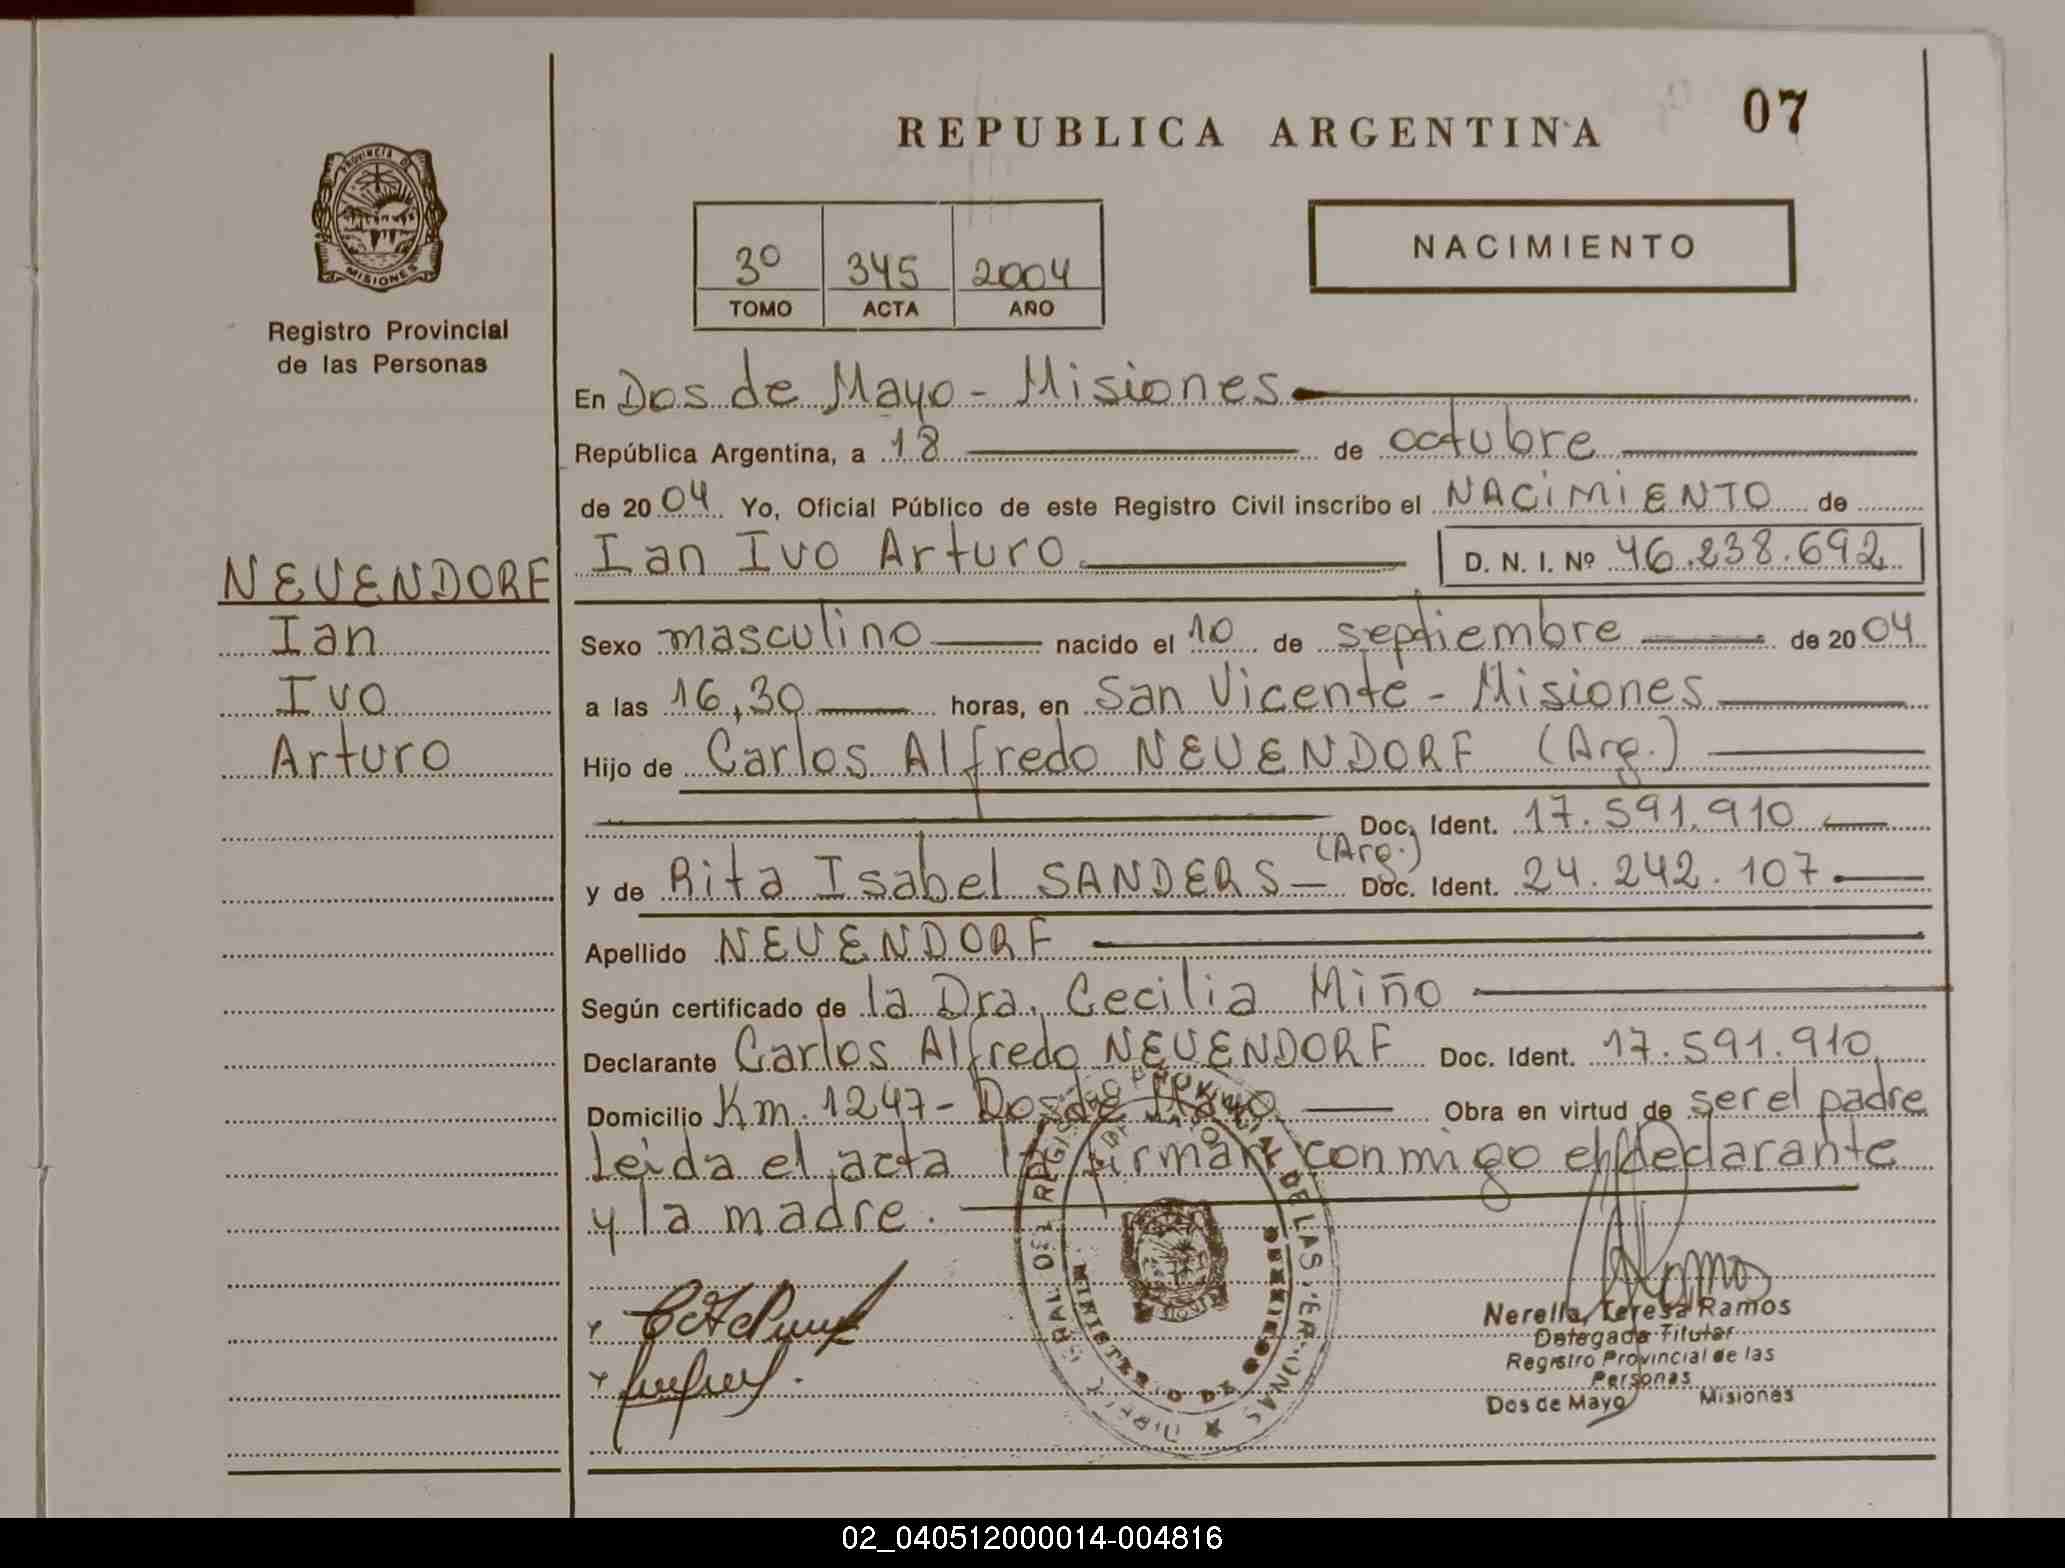 REPUBLICA ARGENTINA
07
PROVINCIA DE
MISIONES
Registro Provincial
de las Personas
3º 345 2004
TOMO ACTA AÑO
NACIMIENTO
En Dos de Mayo - Misiones
República Argentina, a 18 de octubre
de 2004 Yo, Oficial Público de este Registro Civil inscribo el NACIMIENTO de
Ian Ivo Arturo D. N. I. Nº 46.238.692
NEUENDORF
Ian
Ivo
Arturo
Sexo masculino nacido el 10 de septiembre de 2004
a las 16,30 horas, en San Vicente - Misiones
Hijo de Carlos Alfredo NEUENDORF (Arg.)
Doc. Ident. 17.591.910
y de Rita Isabel SANDERS (Arg.) Doc. Ident. 24.242.107
Apellido NEUENDORF
Según certificado de la Dra. Cecilia Miño
Declarante Carlos Alfredo NEUENDORF Doc. Ident. 17.591.910
Domicilio Km. 1247 - Dos de Mayo Obra en virtud de ser el padre
Leida el acta la firman conmigo el declarante
y la madre.
Nerella Teresa Ramos
Delegada Titular
Registro Provincial de las
Personas
Dos de Mayo Misiones
02_040512000014-004816